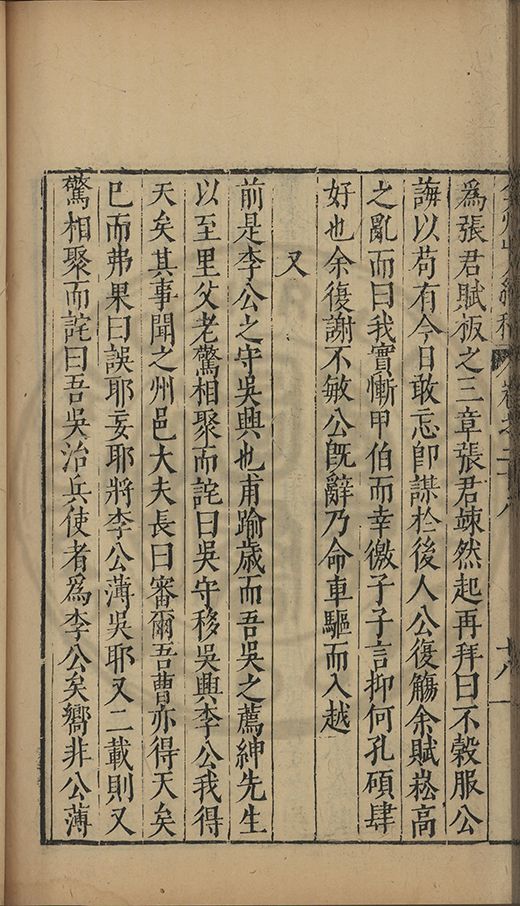 弇州山人續稿 卷之二十八 十八
爲張君賦板之三章張君竦然起再拜曰不穀服公
誨以苟有今日敢忘卽謀於後人公復觴余賦崧高
之亂而曰我實慚甲伯而幸徼子子言抑何孔碩肆
好也余復謝不敏公旣辭乃命車驅而入越
又
前是李公之守吳興也甫踰歲而吾吳之薦紳先生
以至里父老驚相聚而詫曰吳守移吳興李公我得
天矣其事聞之州邑大夫長曰審爾吾曹亦得天矣
已而弗果曰誤耶妄耶將李公薄吳耶又二載則又
驚相聚而詫曰吾吳治兵使者爲李公矣嚮非公薄